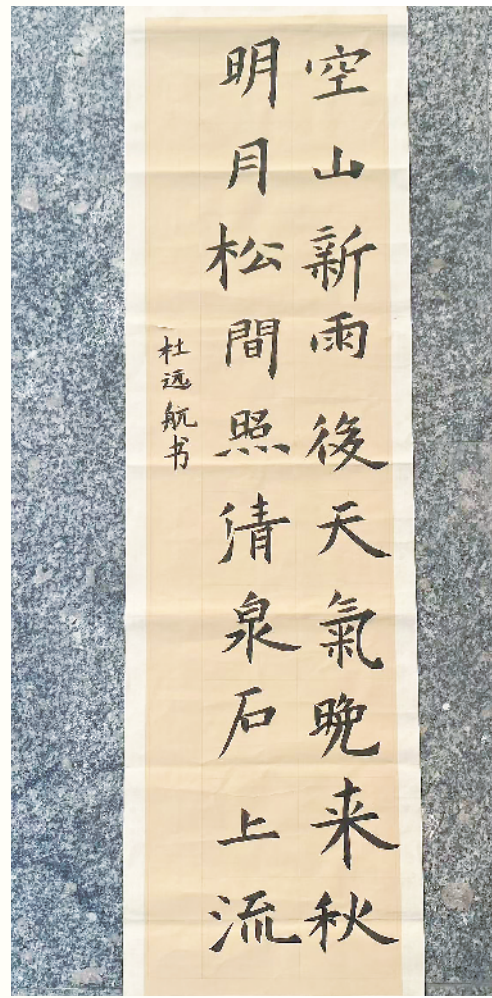 空山新雨後天氣晚来秋
明月松間照清泉石上流
杜远航书